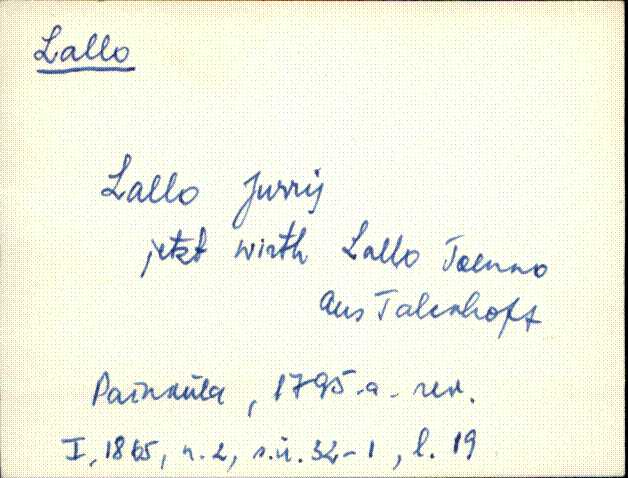 Lallo
Lallo Jurrij
jetzt wirth Lallo Toenno
Aus Talckhoff
Painküla, 1795-a. rev.
I, 1865, n. 2, s.ü. 32-1, l. 19